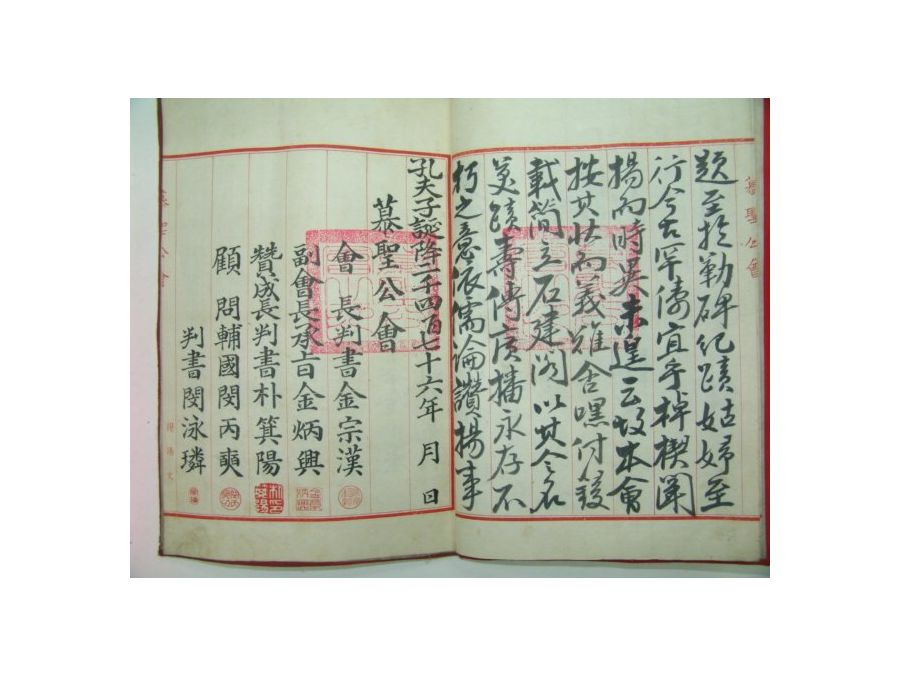 題至於勒碑紀蹟姑婦至
行今古罕儔宜乎棹楔闡
揚而時異未遑云故本會
按其狀而義難含嘿付錄
載簡立石建閣以其令名
美蹟壽傳廣播永存不
朽之意依儒論讚揚事
孔夫子誕降二千四百七十六年 月 日
慕聖公會
會長判書金宗漢
副會長承旨金炳興
贊成長判書朴箕陽
顧問輔國閔丙奭
判書閔泳璘